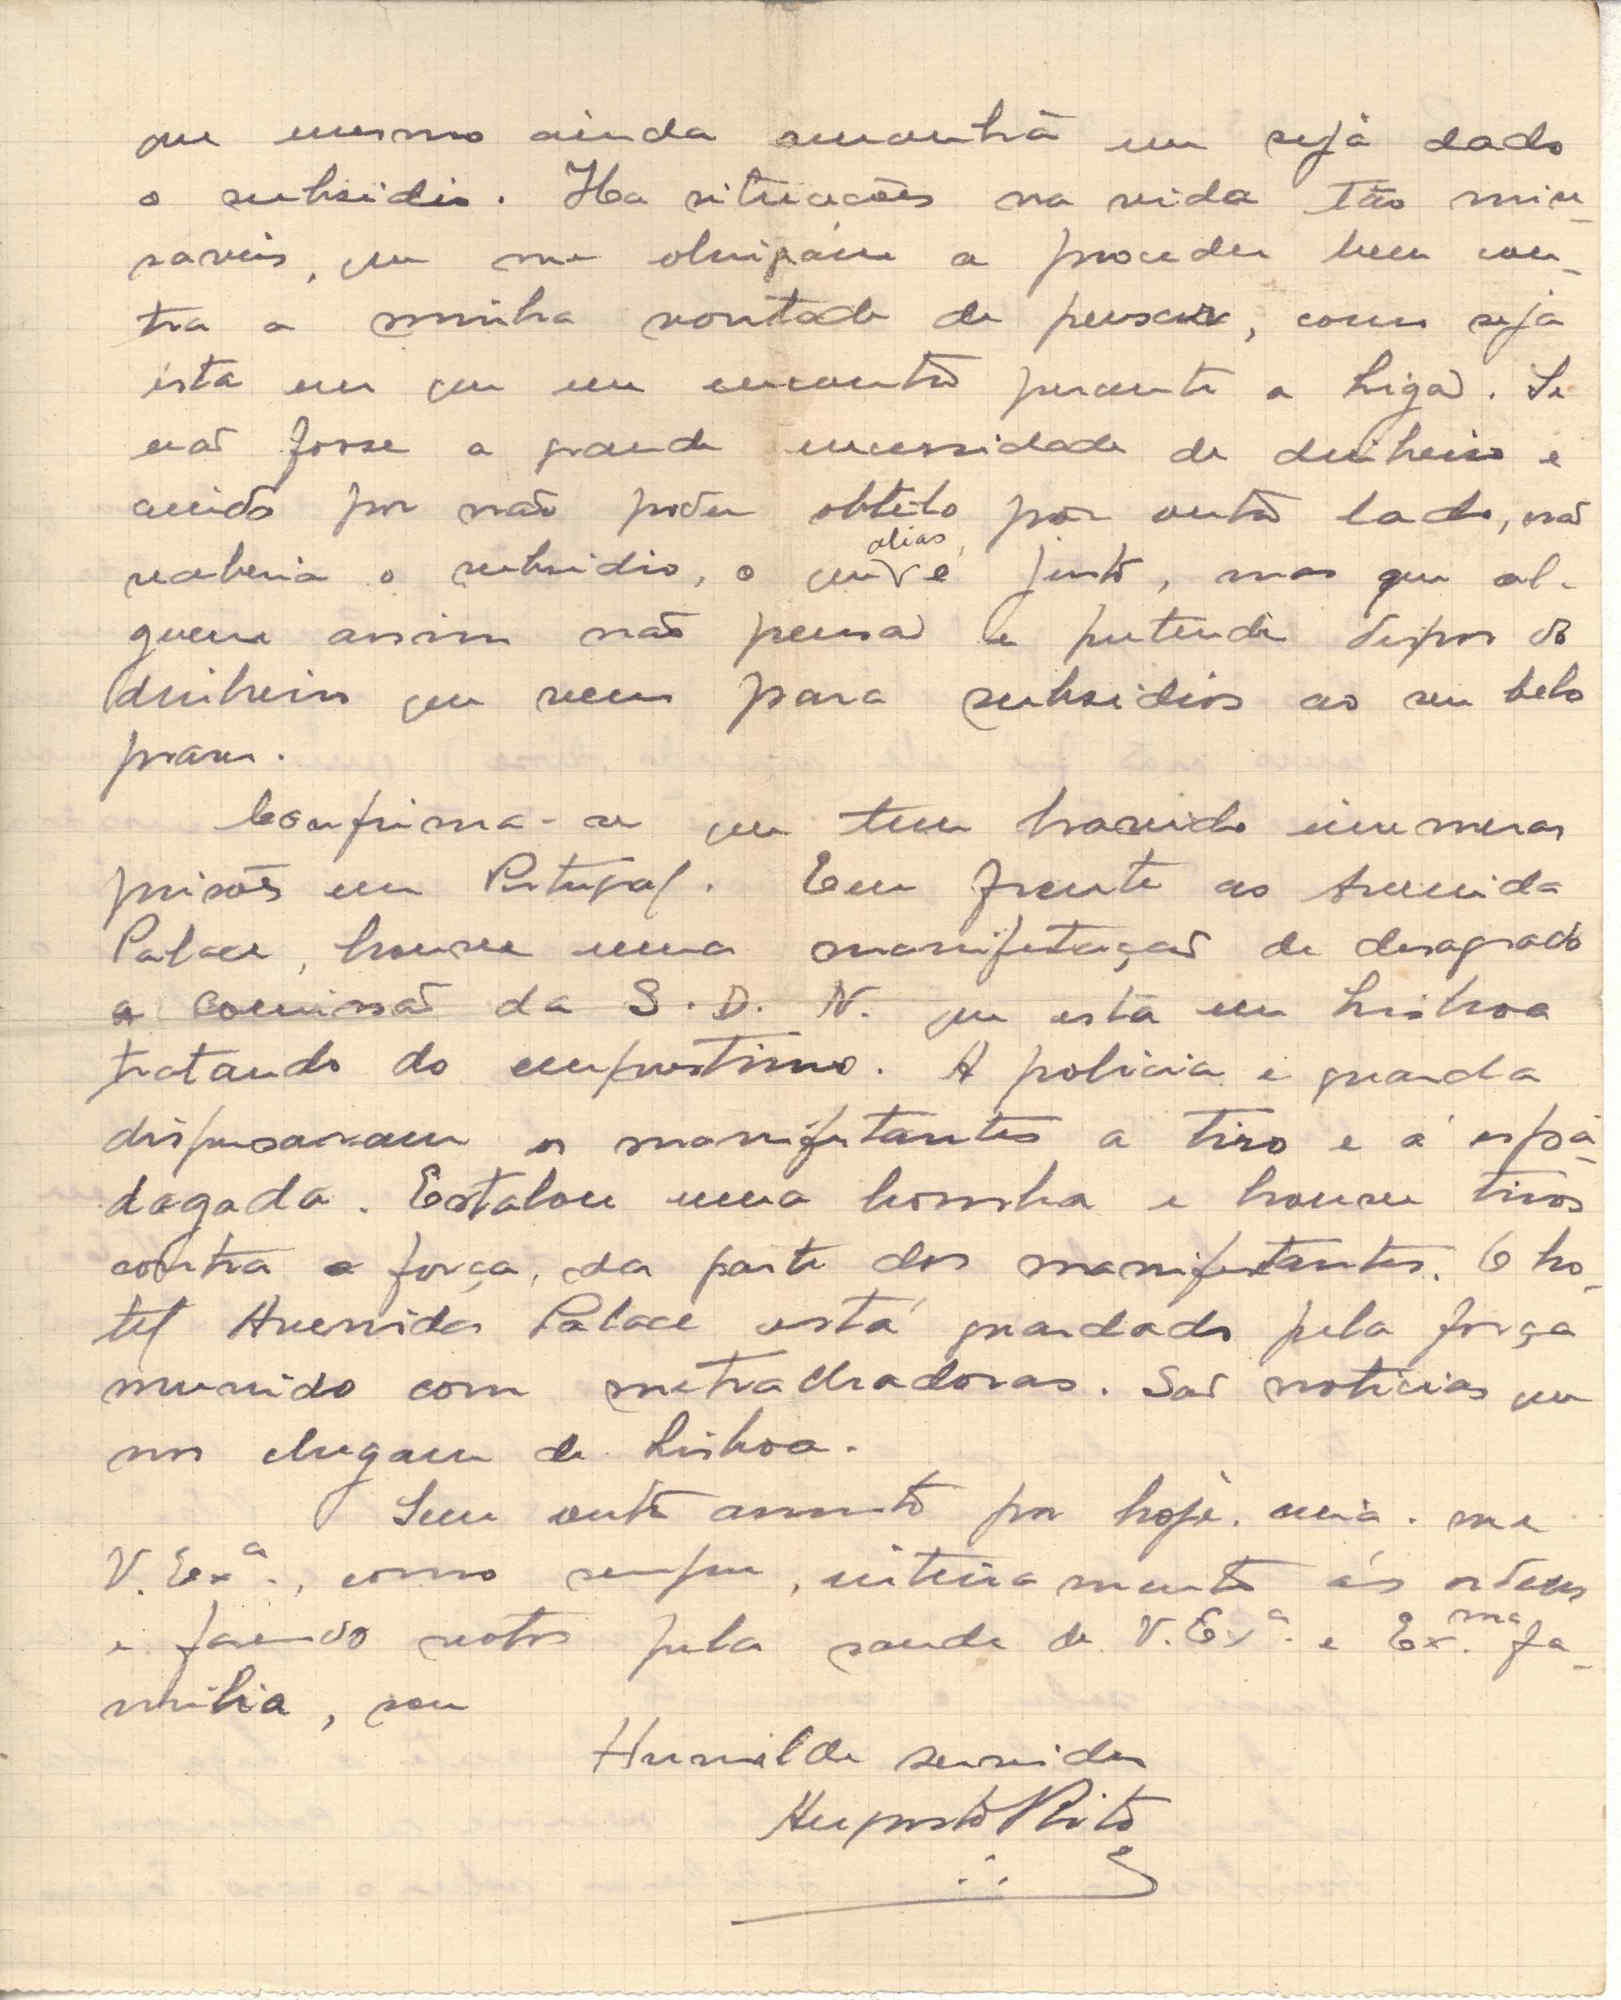 que mesmo ainda amanhã me sejà dado
o subsidio. Ha situações na vida tão mise-
raveis, que me obrigàm a proceder bem con-
tra a minha vontade de pensar, como seja
ésta em que me encontro perante a Liga. Se
não fosse a grande necessidade de dinheiro e
ainda por não poder obtelo por outro lado, não
receberia o subsidio, o que alias, é justo, mas que al-
guem assim não pensa e pretende dispor do
dinheiro que vem para subsidios ao seu belo
prazer.
Confirma-se que tem havido inumeras
prisões em Portugal. Em frente ao Avenida
Palace, houve uma manifestação de desagrado
a comissão da S. D. N. que está em Lisboa
tratando do emprestimo. A policia e guarda
dispersaram os manifestantes a tiro e á espa-
dagada. Estalou uma bomba e houve tiros
contra a força, da parte dos manifestantes. O ho-
tel Avenida Palace está guardado pela força
munido com metralhadoras. São noticias que
nos chegam de Lisboa.
Sem outro assunto por hoje, creia-me
V. Exª., como sempre, inteiramente ás ordens
e fazendo votos pela saude de V. Exª. e Ex.ma fa-
milia, sou
Humilde servidor
Augusto Rito
∴